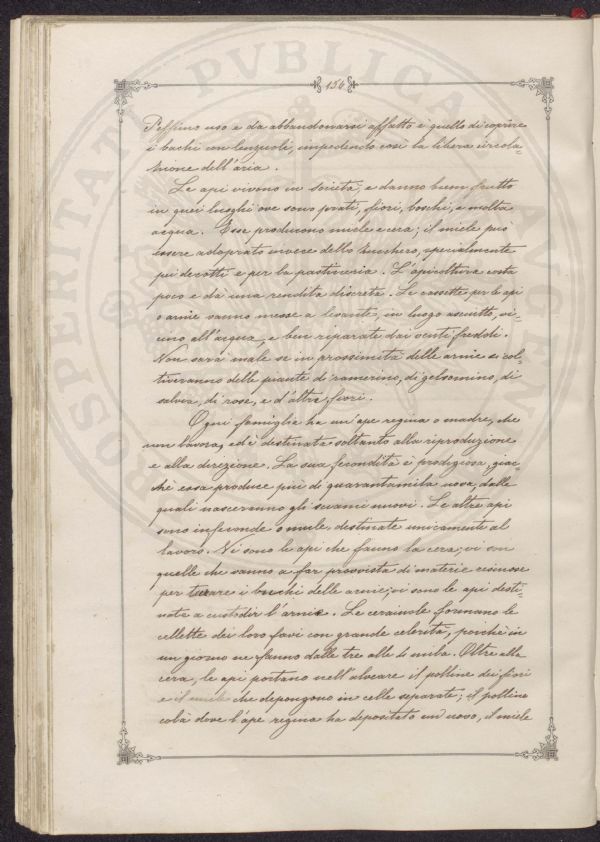 156
Pessimo uso e da abbandonarsi affatto è quello di coprire
i bachi con lenzuoli, impedendo così la libera circola-
zione dell'aria.
Le api vivono in società, e danno buon frutto
in quei luoghi ove sono prati, fiori, boschi, e molta
acqua. Esse producono miele e cera; il miele può
essere adoprato invece dello zucchero, specialmente
pei decotti e per la pasticceria. L'apicoltura costa
poco e dà una rendita discreta. Le cassette per le api
o arnie vanno messe a levante, in luogo asciutto, vi-
cino all'acqua, e ben riparate dai venti freddi.
Non sarà male se in prossimità delle arnie si col-
tiveranno delle piante di ramerino, di gelsomino, di
salvia, di rose, e d'altri fiori.
Ogni famiglia ha un'ape regina o madre, che
non lavora, ed è destinata soltanto alla riproduzione
e alla direzione. La sua fecondità è prodigiosa, giac-
chè essa produce più di quarantamila uova, dalle
quali nasceranno gli sciami nuovi. Le altre api
sono infeconde o mule destinate unicamente al
lavoro. Vi sono le api che fanno la cera; vi son
quelle che vanno a far provvista di materie resinose
per turare i buchi delle arnie; vi sono le api desti-
nate a custodir l'arnie. Le ceraiuole formano le
cellette dei loro favi con grande celerità, poichè in
un giorno ne fanno dalle tre alle 4 mila. Oltre alla
cera, le api portano nell'alveare il polline dei fiori
e il miele che depongono in celle separate; il polline
colà dove l'ape regina ha depositato un uovo, il miele
PROSPERITATI PVBLICAE AVGENDAE